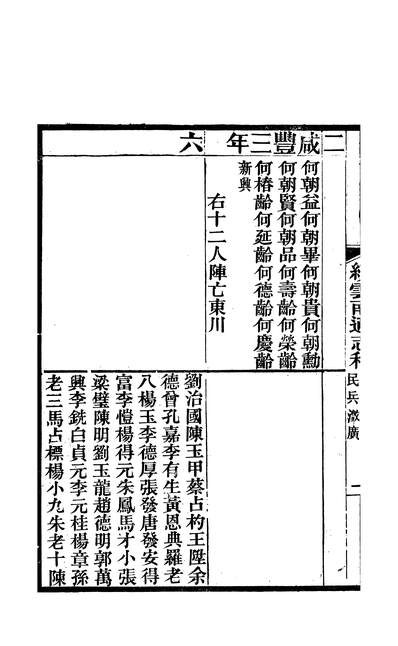 續雲南通志稿
民兵 澂廣
一
二
咸豐三年
六
何朝益何朝畢何朝貴何朝勳
何朝賢何朝品何壽齡何榮齡
何椿齡何延齡何德齡何慶齡
新興
右十二人陣亡東川
劉治國陳玉甲蔡占杓王陞余
德曾孔嘉李有生黃恩典羅老
八楊玉李德厚張發唐發安得
富李愷楊得元朱鳳馬才小張
梁璧陳明劉玉龍趙德明郭萬
興李銑白貞元李元桂楊章孫
老三馬占標楊小九朱老十陳